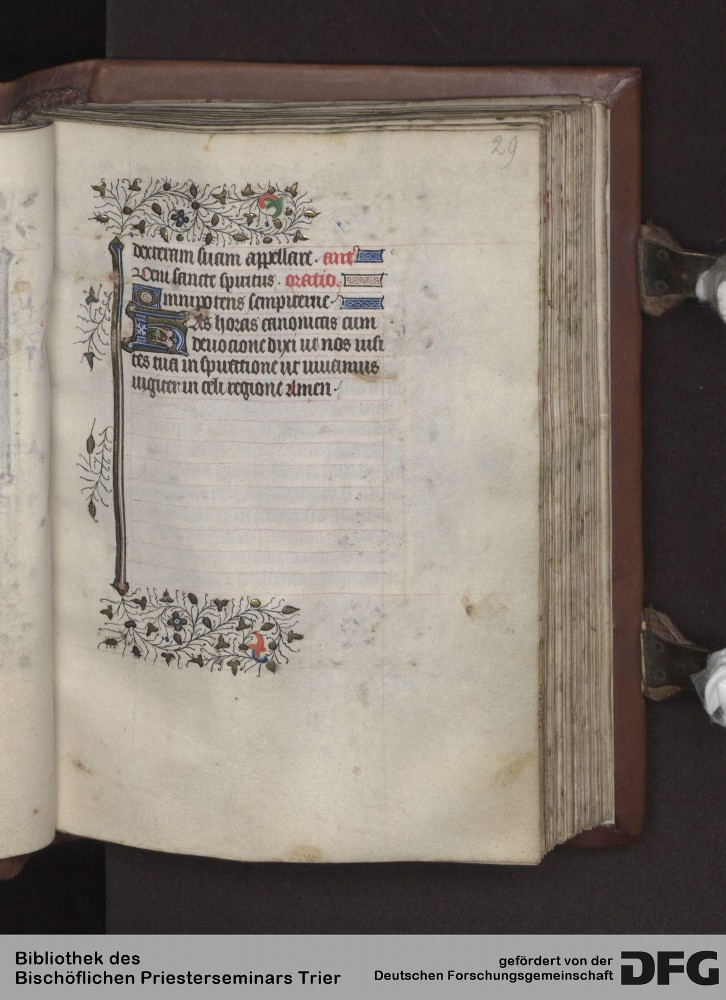 29
dexteram suam appellare. ant̾
Veni sancte spiritus. oratio.
Omnipotens sempiterne
Has horas canonicas cum
deuocione dixi ut nos uisi
tes tua in spirettione ut uiuamus
iugiter in celi regione Amen.
Bibliothek des
Bischöflichen Priesterseminars Trier
gefördert von der
Deutschen Forschungsgemeinschaft
DFG